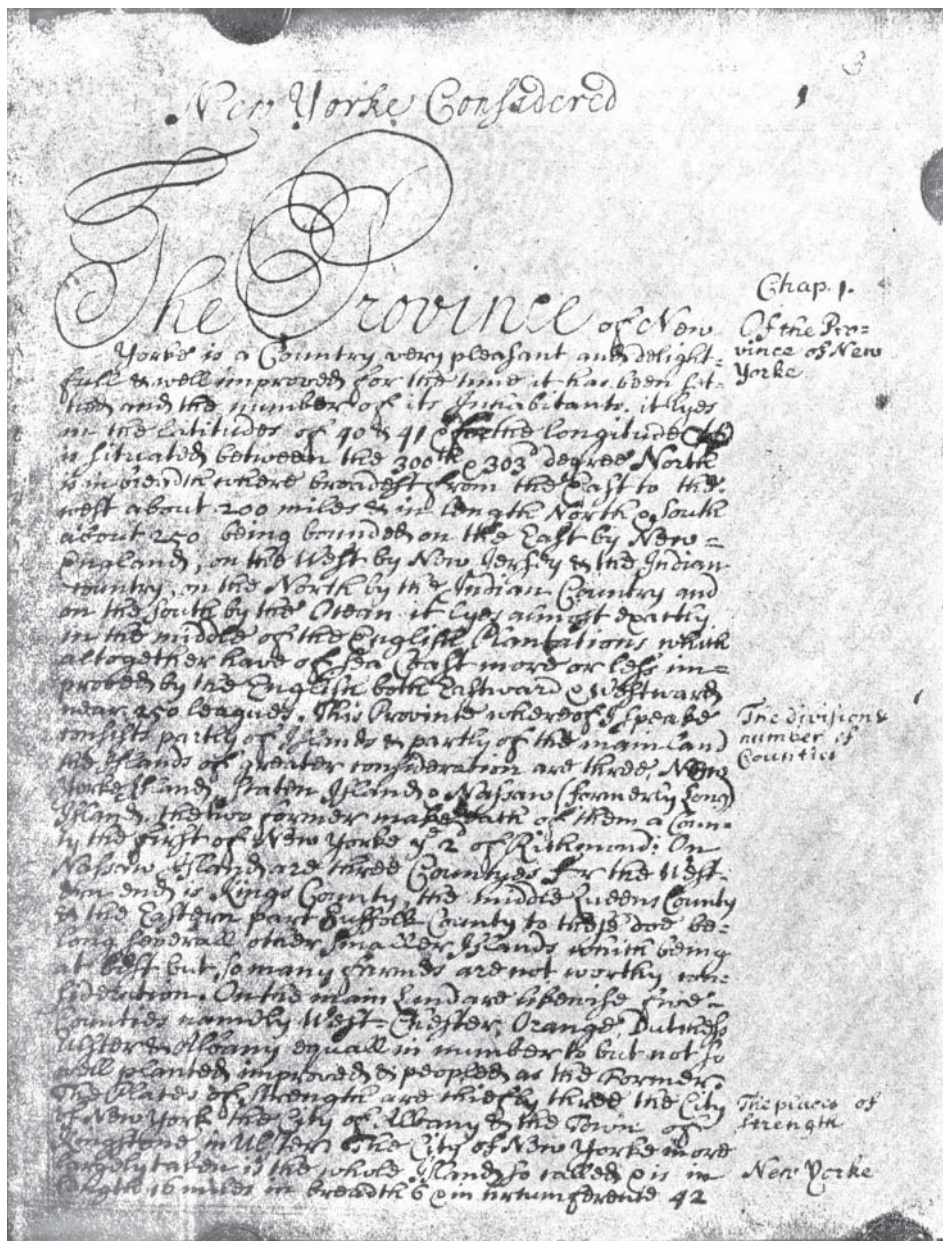 3
New Yorke Considered
1
The Province of New
Yorke is a Country very pleasant and delight-
full & well improved for the time it has been set-
tled and the number of its Inhabitants. it lyes
in the Latitudes of 40 & 41 & for the longitude
is situated between the 300th & 303d degree North
is in breadth where broadest from the East to the
west about 200 miles & in length North & South
about 250 being bounded on the East by New=
England, on the West by New Jersey & the Indian
Country, on the North by the Indian Country and
on the South by the Ocean. it lyes almost exactly
in the middle of the English Plantations which
altogether have of sea Coast more or less im=
proved by the English both Eastward & Westward
near 250 leagues. This Province whereof I speake
consists partly of Islands & partly of the mainland
the Islands of greater consideration are three, New
Yorke Island, Staten Island & Nassaw (formerly Long)
Island. the two former make each of them a Coun-
ty the first of New Yorke ye 2 of Richmond: On
Nassaw Island are three Countyes for the West-
ern end is Kings County, the middle Queens County
& the Eastern part Suffolk County to these doe be-
long severall other smaller Islands which being
at best but so many farmes are not worthy con-
sideration. On the main Land are likewise five
Counties namely West-Chester, Orange, Dutchess
Ulster & Albany equall in number to but not so
well planted improved & peopled as the Former.
The Places of Strength are chiefly three the City
of New York the City of Albany & the Town of
Kingstone in Ulster. The City of New Yorke more
largely taken is the whole Island so called & is in
length 16 miles in breadth 6 & in circumference 42
Chap. 1.
Of the Pro-
vince of New
Yorke
The division &
number of
Counties
The places of
strength
New Yorke